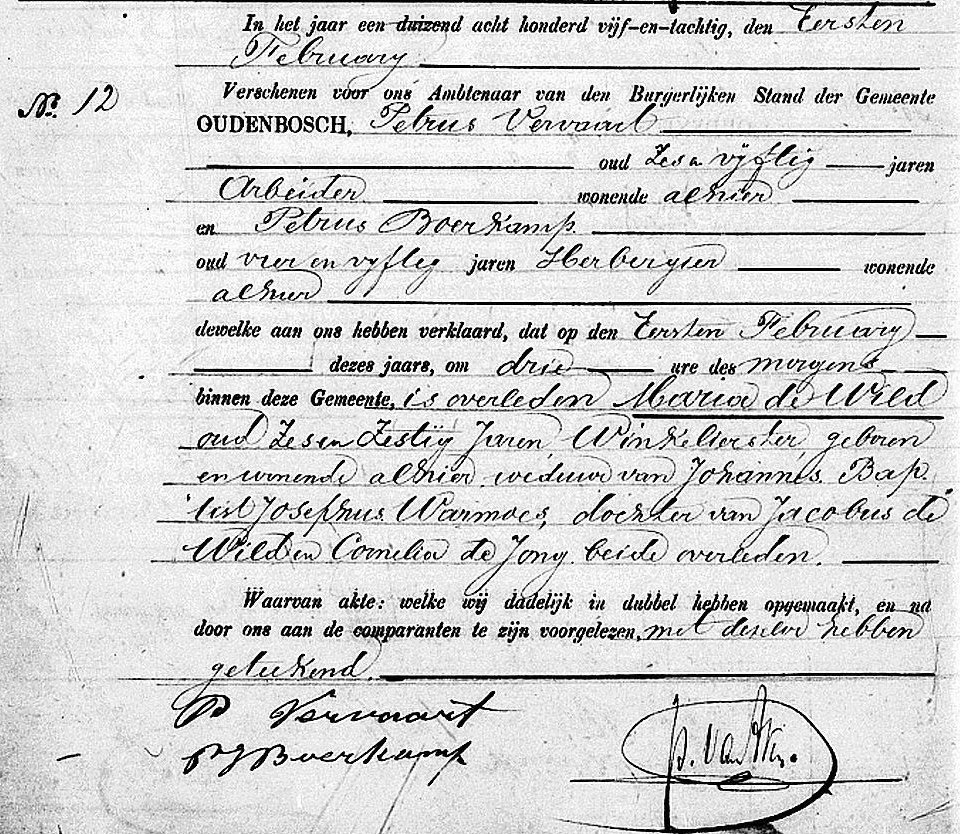 In het jaar een duizend acht honderd vijf-en-tachtig, den Eersten
February
No. 12
Verschenen voor ons Ambtenaar van den Burgerlijken Stand der Gemeente
OUDENBOSCH, Petrus Vervaart
oud Zes en vijftig jaren
Arbeider wonende alhier
en Petrus Boerkamp
oud vier en vyftig jaren Herbergier wonende
alhier
dewelke aan ons hebben verklaard, dat op den Eersten February
dezes jaars, om drie ure des morgens
binnen deze Gemeente, is overleden Maria de Wild
oud Zes en Zestig Jaren Winkelierster geboren
en wonende alhier weduwe van Johannes Bap
tist Josephus Warmoes, dochter van Jacobus de
Wild en Cornelia de Jong beide overleden.
Waarvan akte: welke wij dadelijk in dubbel hebben opgemaakt, en na
door ons aan de comparanten te zijn voorgelezen, met dezelve hebben
geteekend.
P Vervaart
P J Boerkamp